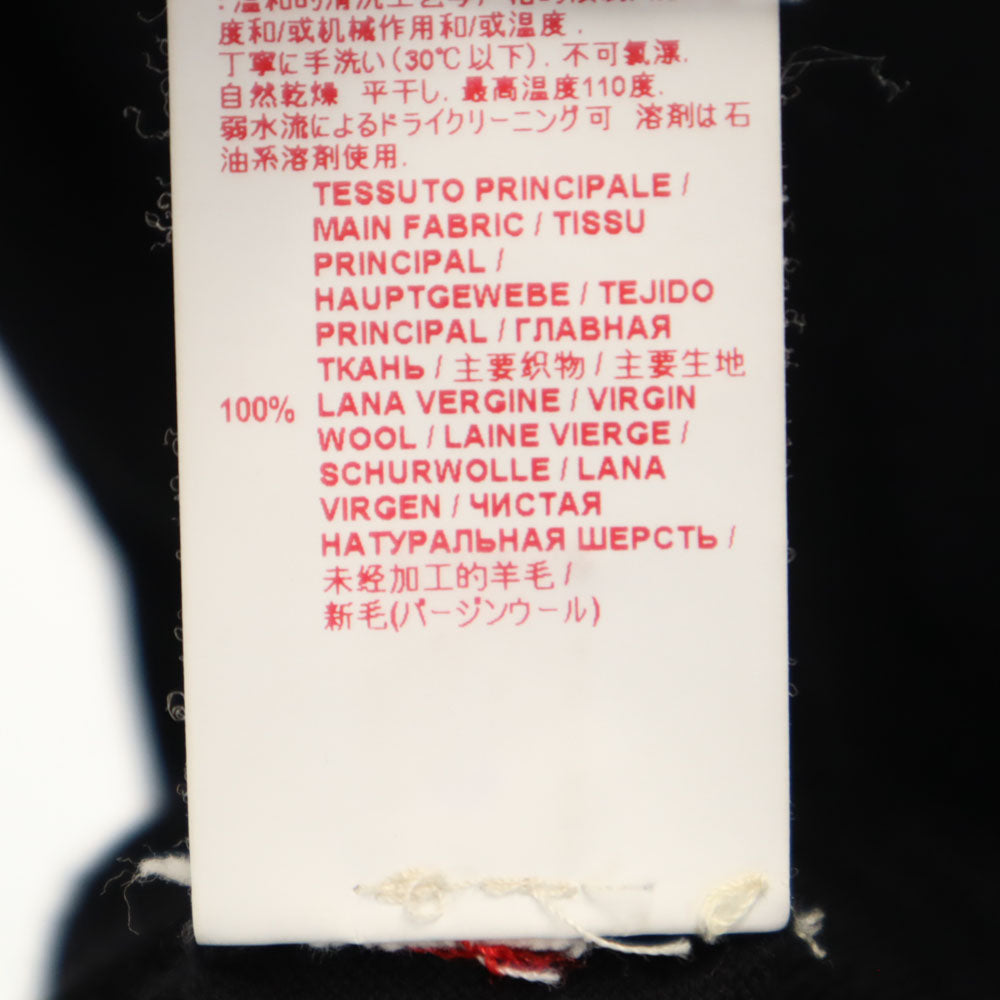 度和/或机械作用和/或温度.
丁寧に手洗い(30℃以下). 不可氯漂.
自然乾燥 平干し. 最高温度110度.
弱水流によるドライクリーニング可 溶剤は石
油系溶剤使用.
TESSUTO PRINCIPALE /
MAIN FABRIC / TISSU
PRINCIPAL /
HAUPTGEWEBE / TEJIDO
PRINCIPAL / ГЛАВНАЯ
ТКАНЬ / 主要织物 / 主要生地
100% LANA VERGINE / VIRGIN
WOOL / LAINE VIERGE /
SCHURWOLLE / LANA
VIRGEN / ЧИСТАЯ
НАТУРАЛЬНАЯ ШЕРСТЬ /
未经加工的羊毛 /
新毛(バージンウール)